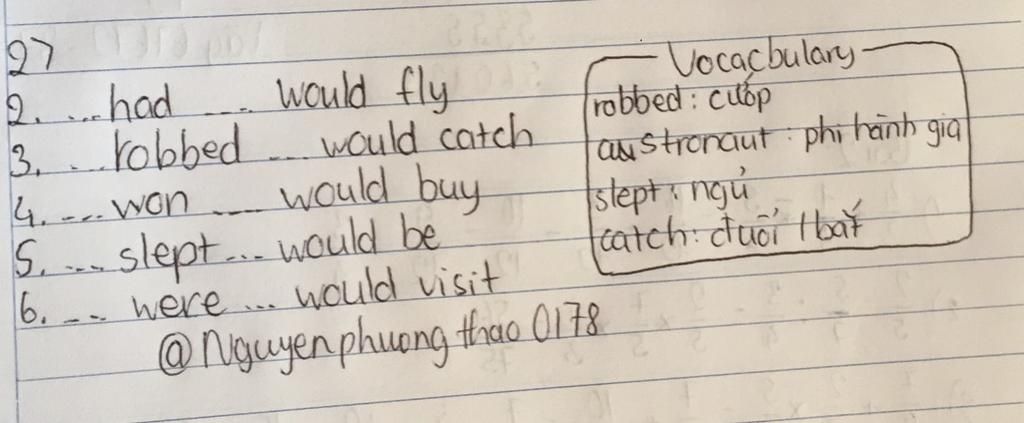 2>
2. ... had ... would fly
3. ... robbed ... would catch
4. ... won ... would buy
5. ... slept ... would be
6. ... were ... would visit
@Nguyenphuongthao0178
Vocacbulary
robbed : cướp
austronaut : phi hành gia
slept : ngủ
catch : đuổi / bắt